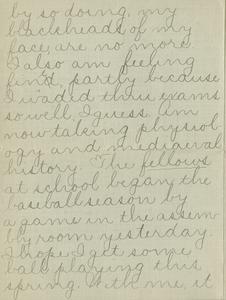 by so doing, my
blackheads of my
face are no more.
I also am feeling
fine, partly because
I waded thru exams
so well, I guess. am
now taking physiol-
ogy and mediaeval
history. The fellows
at school began the
baseball season by
a game in the assem-
bly room yesterday.
I hope I get some
ball playing this
spring. With me, it